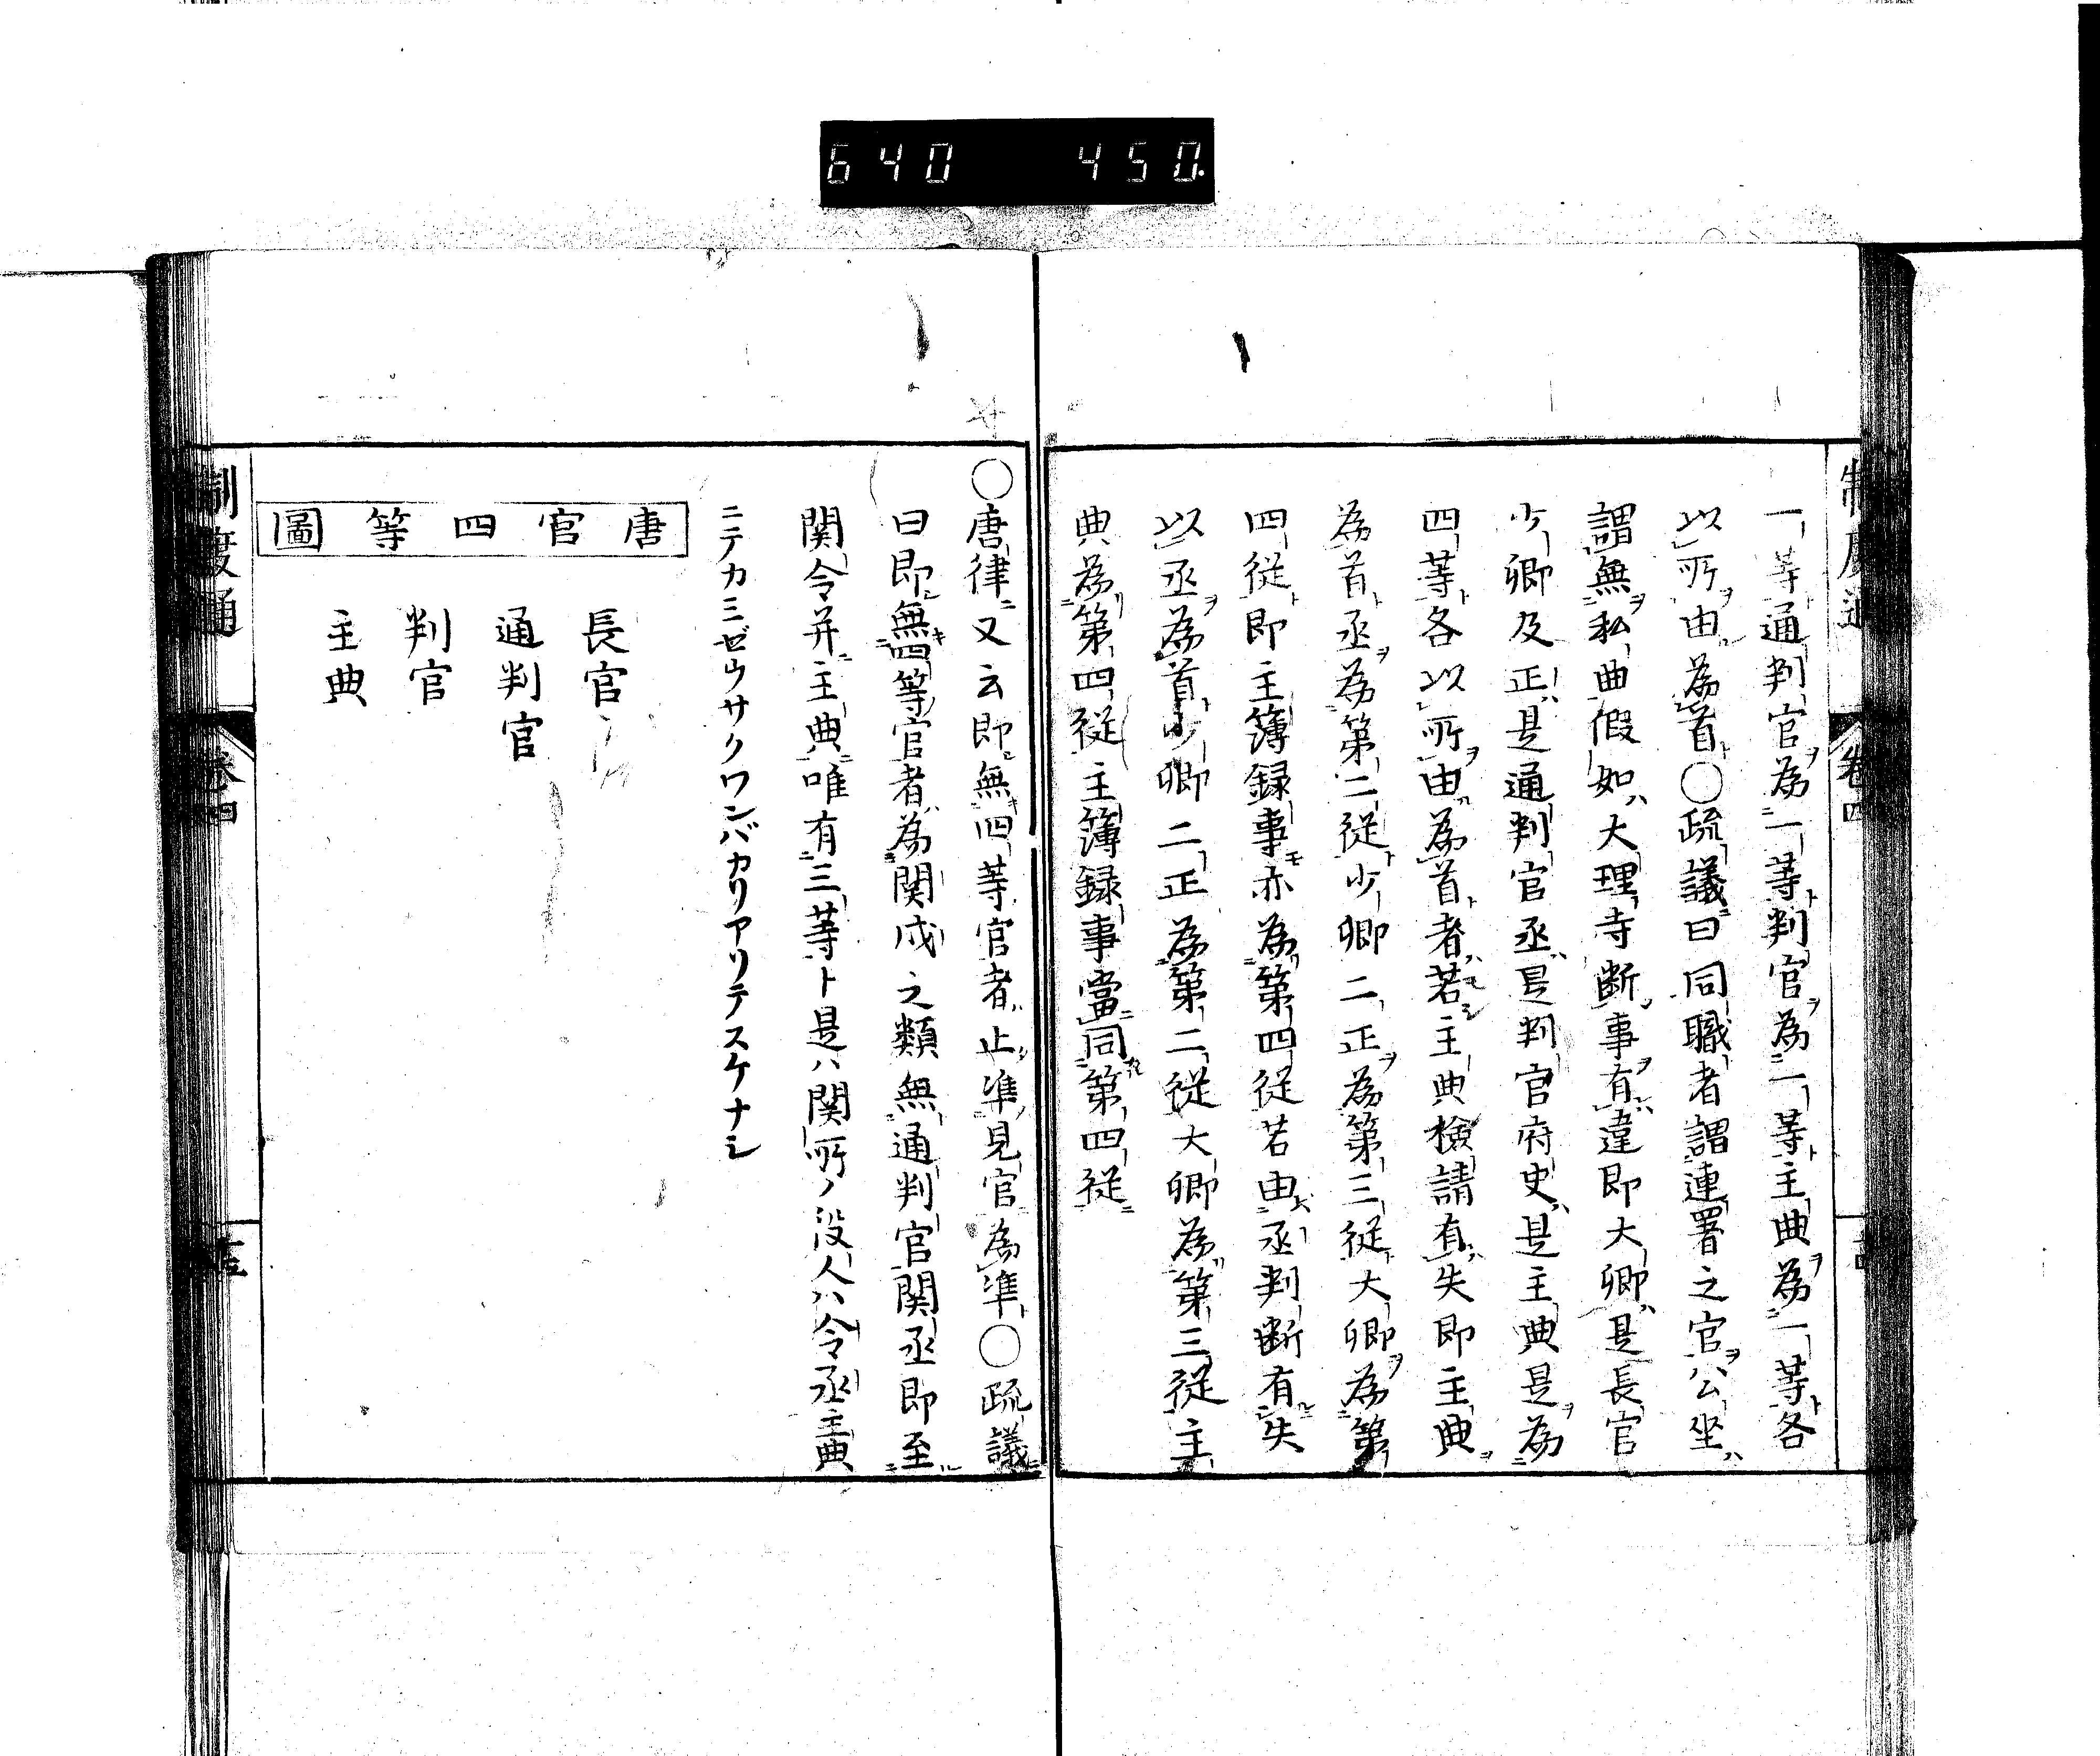 640 450.
制度通 卷四
一等通判官為一等判官為一等主典為一等各
以所由為首○疏議曰同職者謂連署之官公坐
謂無私曲假如大理寺断事有違即大卿是長官
少卿及正是通判官丞是判官府史是主典是為
四等各以所由為首者若主典検請有失即主典
為首丞為第二従少卿二正為第三従大卿為第
四従即主簿録事亦為第四従若由丞判断有失
以丞為首少卿二正為第二従大卿為第三従主
典為第四従主簿録事當同第四従
○唐律又云即無四等官者止凖見官為凖○疏議
曰即無四等官者為関戍之類無通判官関丞即至
関令并主典唯有三等ト是ハ関所ノ役人ハ令丞主典
ニテカミゼウサクワンバカリアリテスケナシ
唐官四等圖
長官
通判官
判官
主典
制度通 卷四